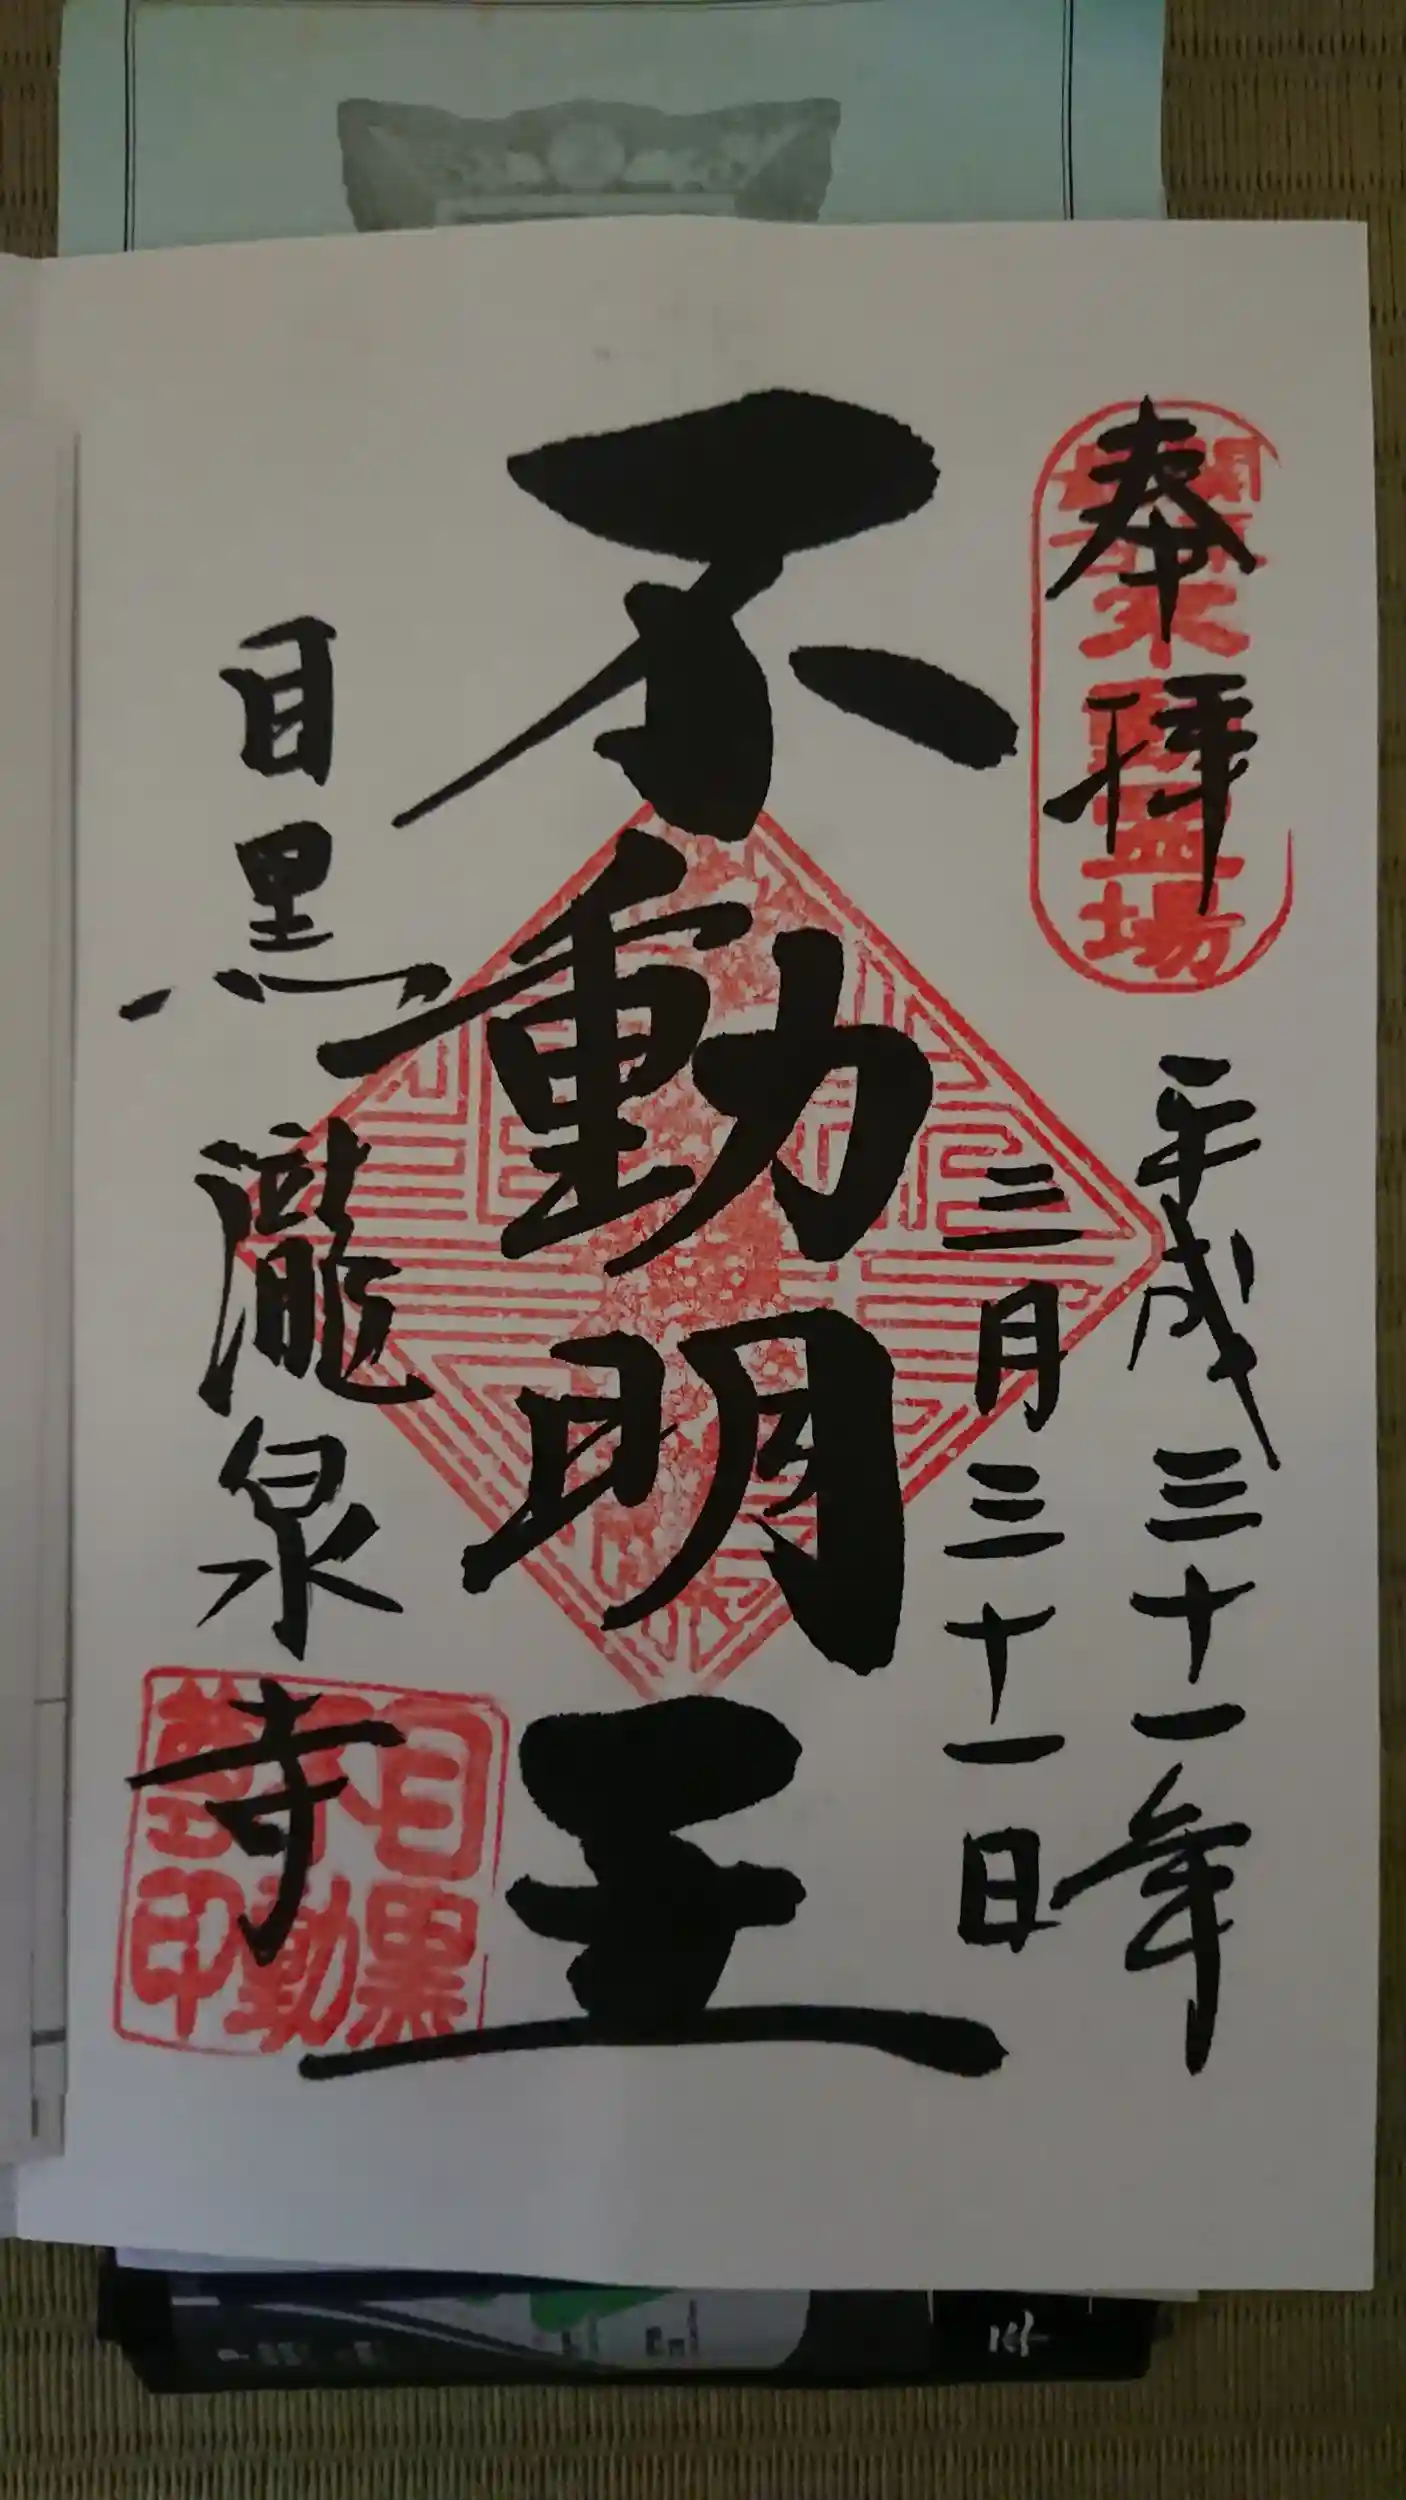 奉拝
関東最霊場
平成三十一年
三月三十一日
不動明王
目黒
瀧泉寺
目黒
不動
尊印